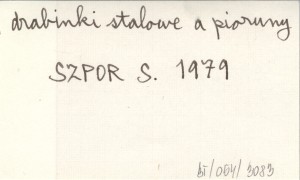 drabinki stalowe a pioruny
SZPOR S. 1979
BI/004/3083